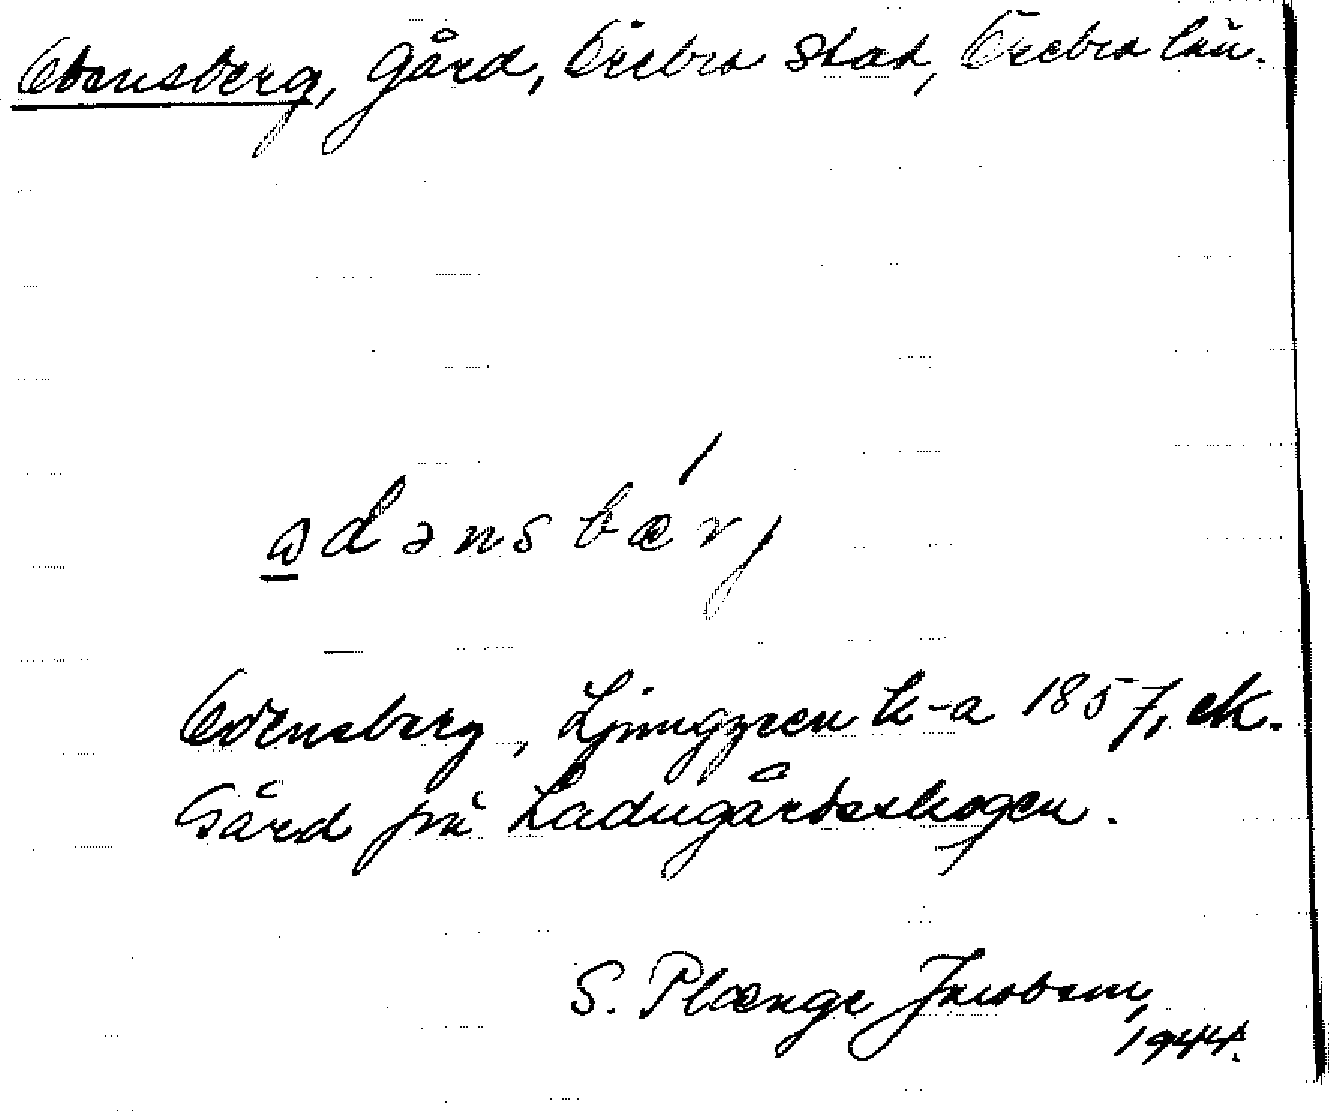 Odensberg, Gård, Örebro stad, Örebro län.
ω̲dənsbæ´rj
Odensberg, Ljunggren k-a 1857, ek.
Gård på Ladugårdsskogen.
S. Plænge Jacobson,
1944.